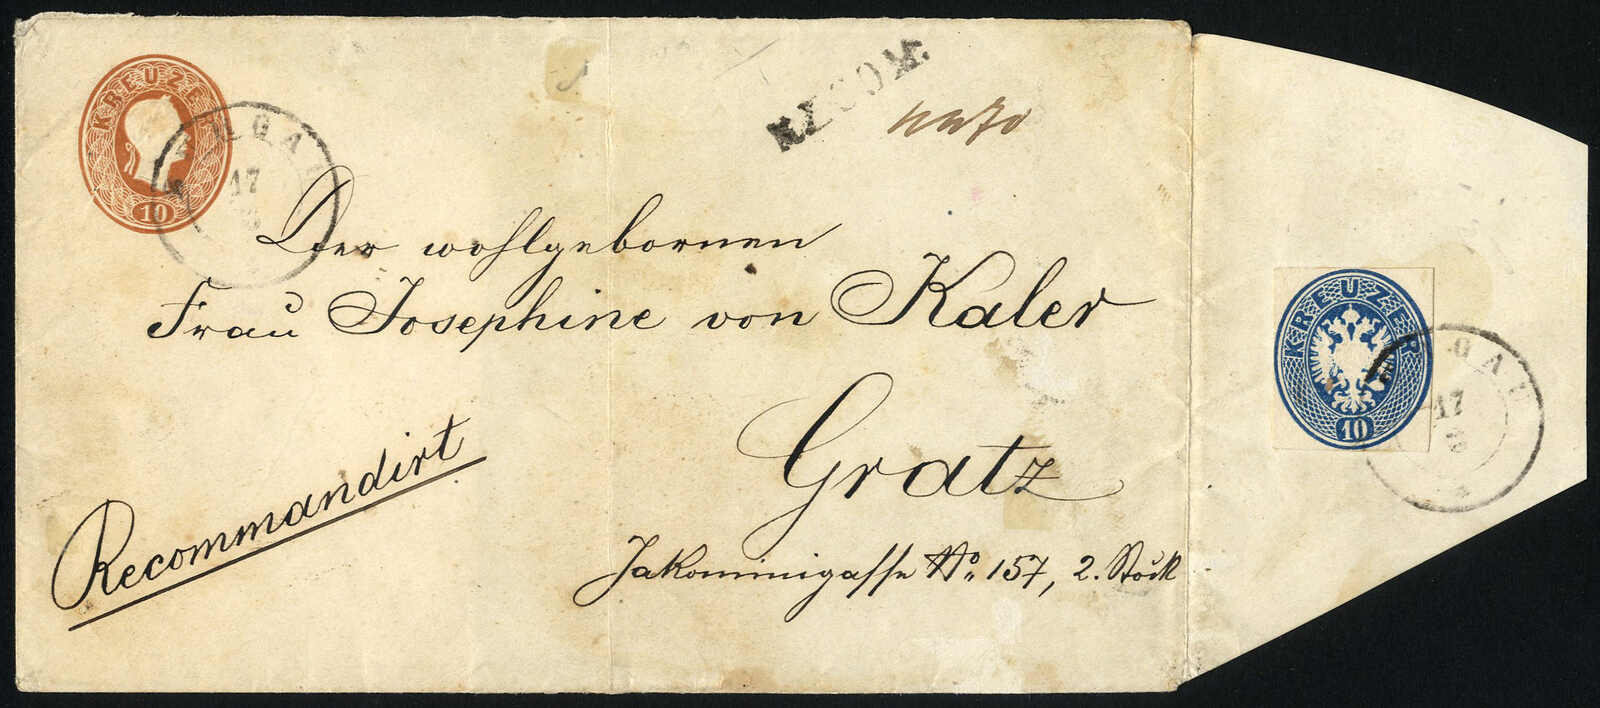 KREUZER
10
17
RECOM.
Der wohlgebornen
Frau Josephine von Kaler
Gratz
Jakominigasse No. 157, 2. Stock
Recommandirt
KREUZER
10
17